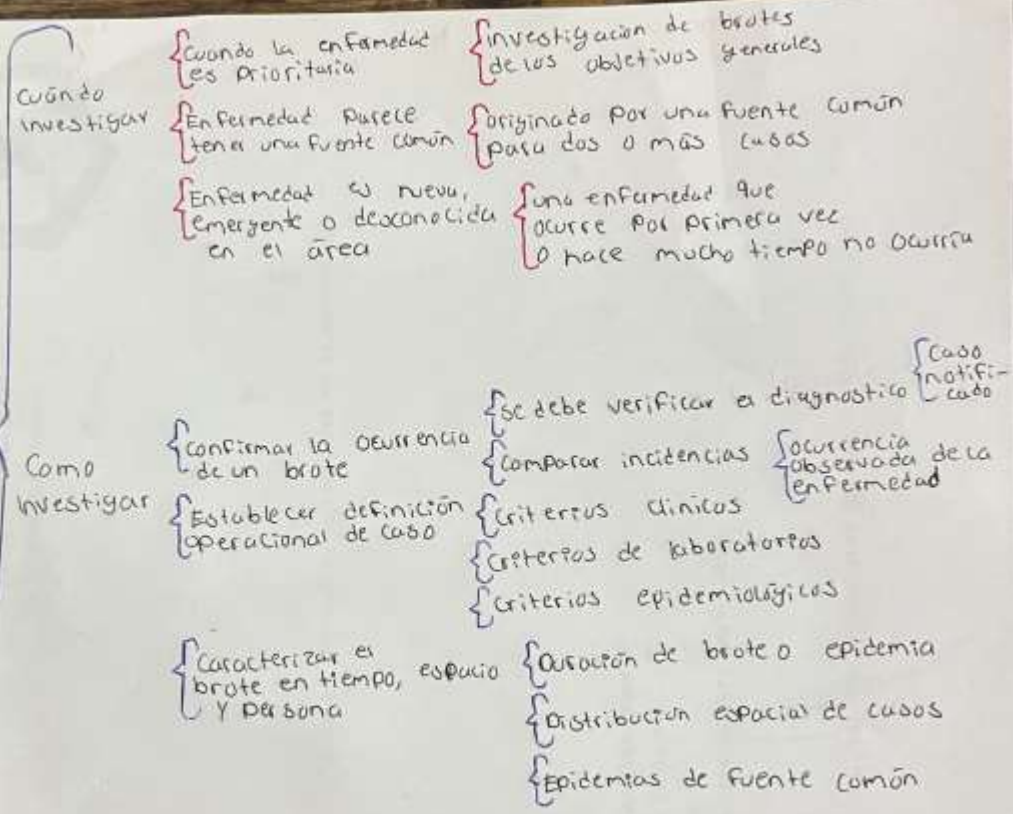 cuándo
investigar
cuando la enfermedad
es prioritaria
investigación de brotes
de los objetivos generales
Enfermedad parece
tener una fuente común
originado por una fuente común
para dos o más casos
Enfermedad es nueva,
emergente o desconocida
en el área
una enfermedad que
ocurre por primera vez
o hace mucho tiempo no ocurría
Como
investigar
confirmar la ocurrencia
de un brote
se debe verificar el diagnostico
caso
notifi-
cado
comparar incidencias
ocurrencia
observada de la
enfermedad
Establecer definición
operacional de caso
criterios clinicos
criterios de laboratorios
criterios epidemiológicos
caracterizar el
brote en tiempo, espacio
y persona
Duración de brote o epidemia
Distribución espacial de casos
Epidemias de fuente común